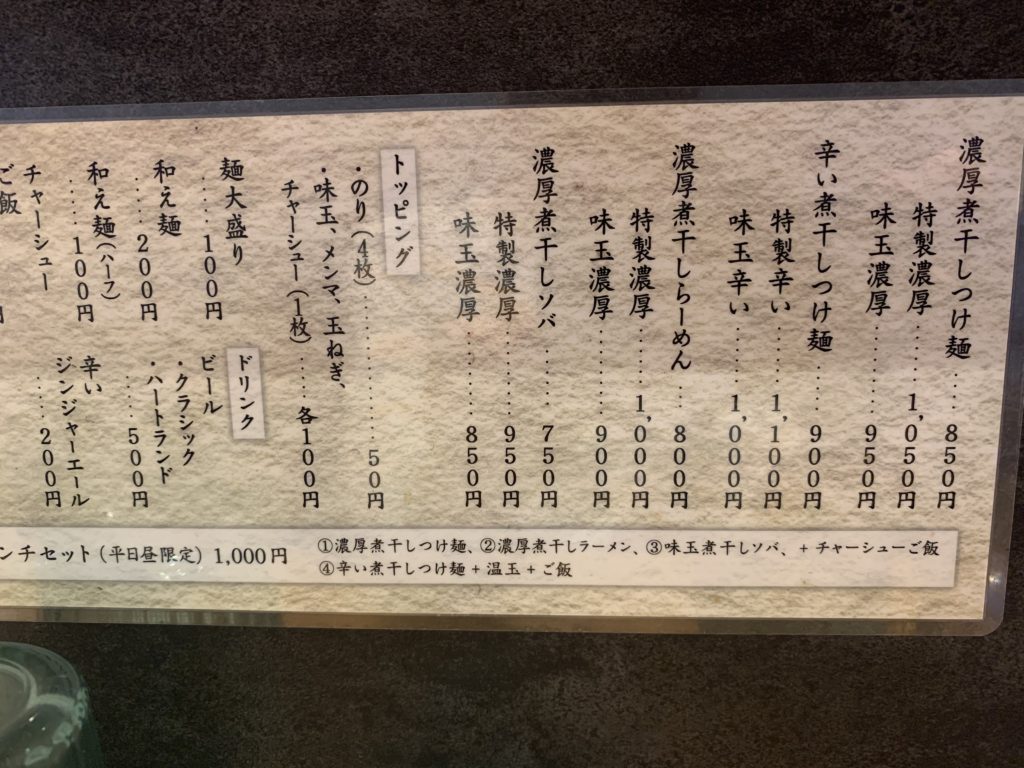 濃厚煮干しつけ麺……850円
特製濃厚……1,050円
味玉濃厚……950円
辛い煮干しつけ麺……900円
特製辛い……1,100円
味玉辛い……1,000円
濃厚煮干しらーめん……800円
特製濃厚……1,000円
味玉濃厚……900円
濃厚煮干しソバ……750円
特製濃厚……950円
味玉濃厚……850円
トッピング
・のり（4枚）……50円
・味玉、メンマ、玉ねぎ、
チャーシュー（1枚）……各100円
麺大盛り
……100円
和え麺
……200円
和え麺（ハーフ）
……100円
チャーシュー
ご飯
円
ドリンク
ビール
・クラシック
・ハートランド
……500円
辛い
ジンジャーエール
……200円
ンチセット（平日昼限定）1,000円
①濃厚煮干しつけ麺、②濃厚煮干しラーメン、③味玉煮干しソバ、+ チャーシューご飯
④辛い煮干しつけ麺 + 温玉 + ご飯